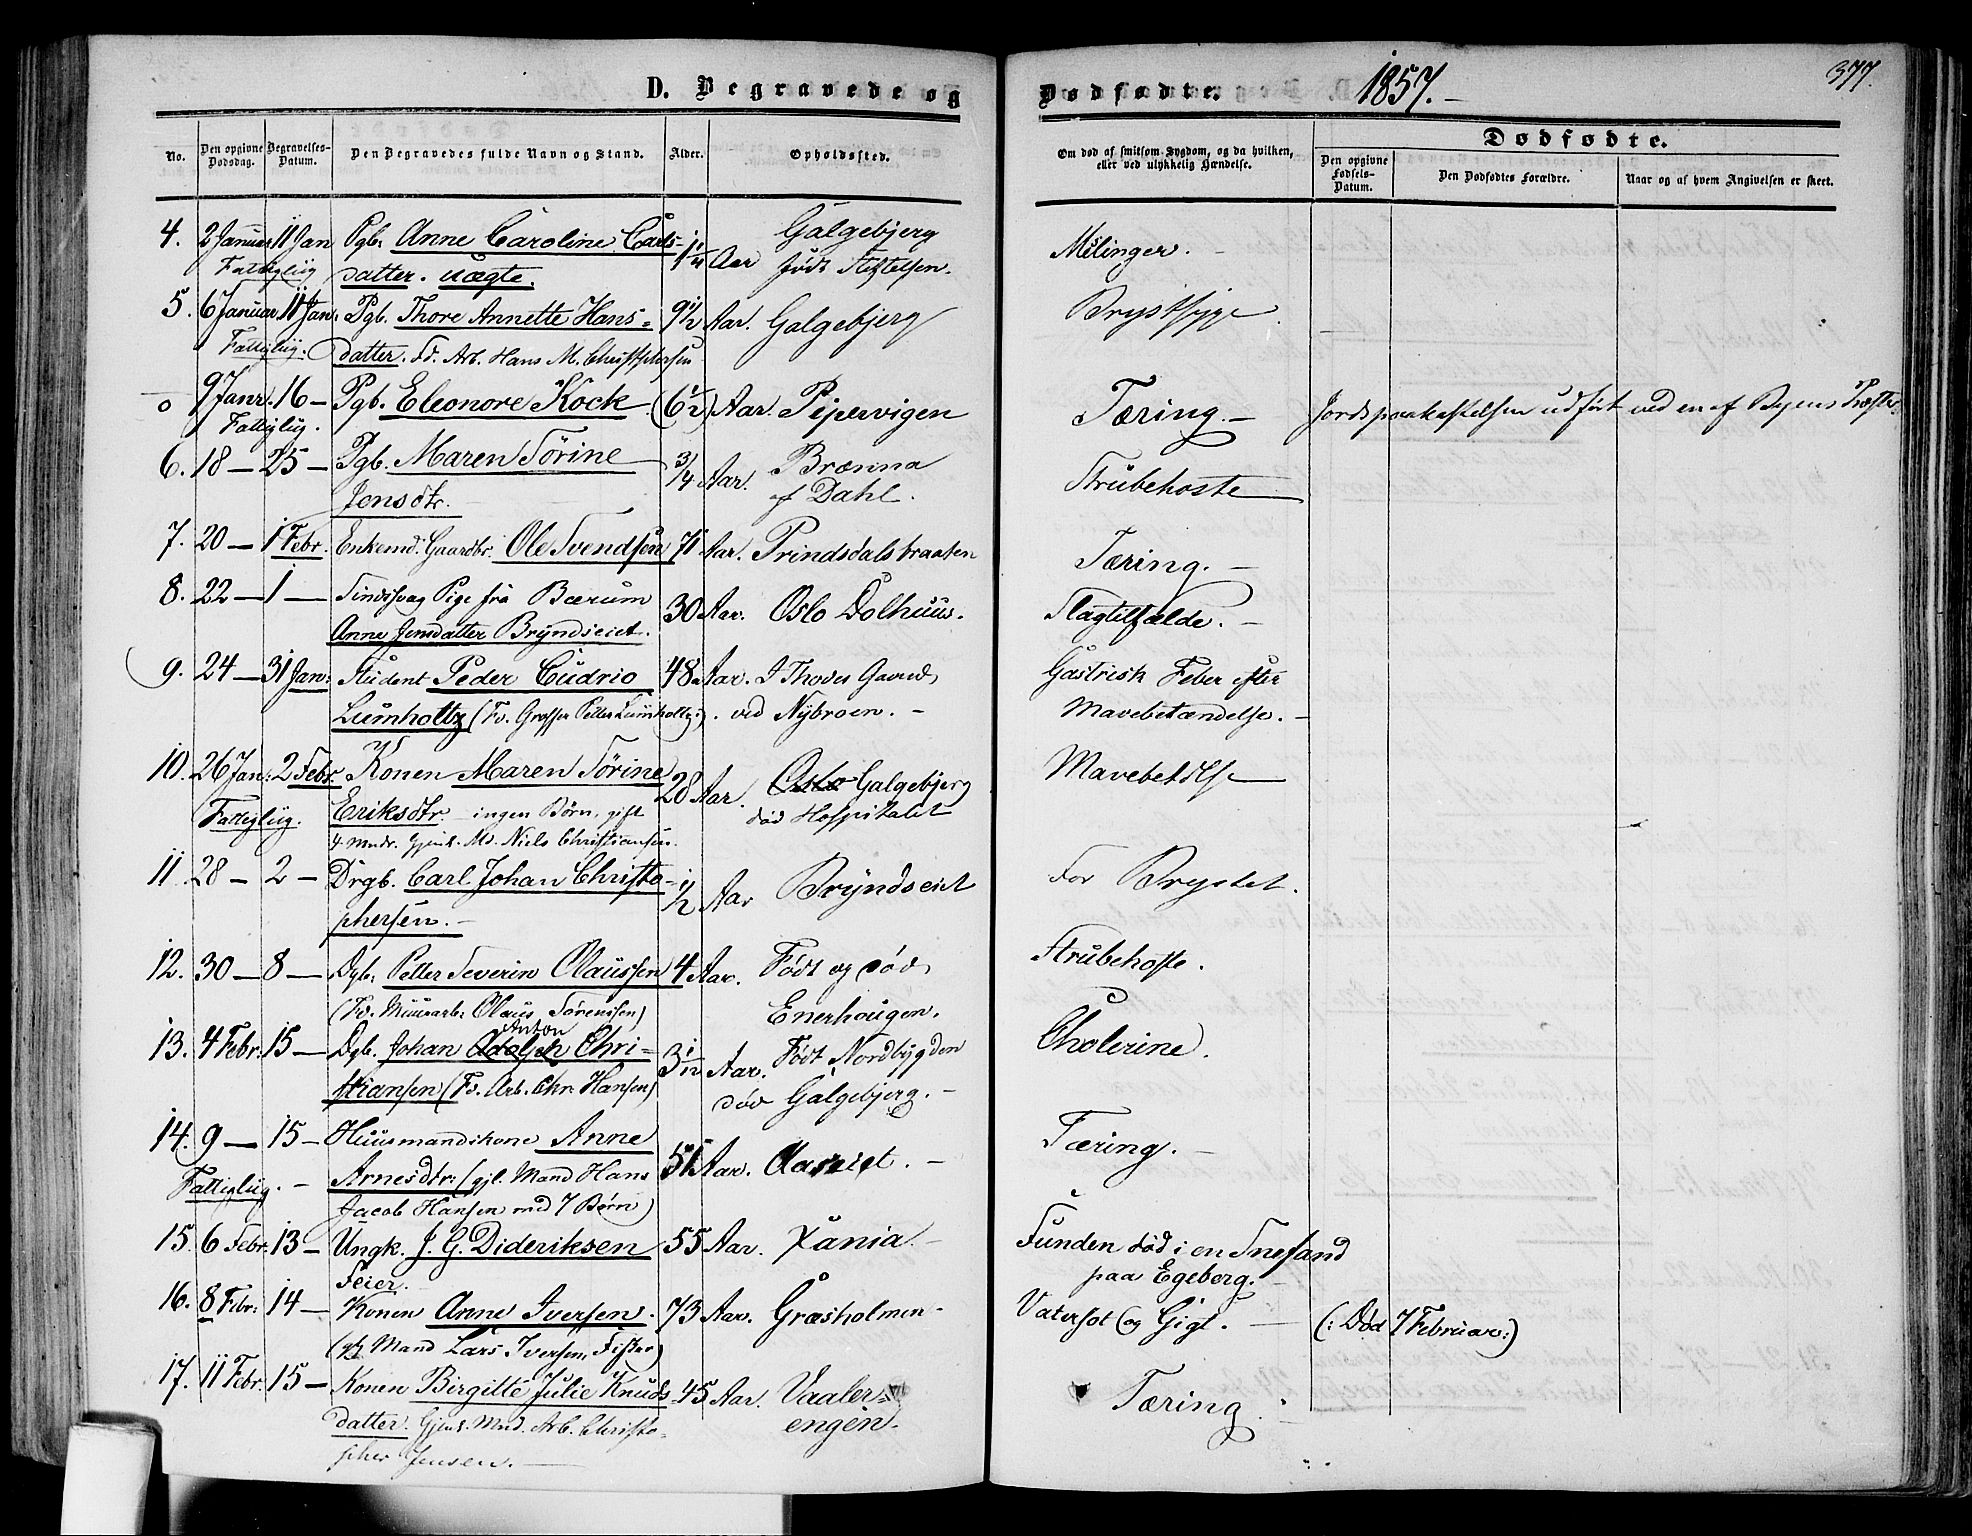 D. Begravede og
Dødfødte.
1857.
377.
No.
Den opgivne Dødsdag.
Begravelses-Datum.
Den Begravedes fulde Navn og Stand.
Alder.
Opholdssted.
Om død af smitsom Sygdom, og da hvilken, eller ved ulykkelig Hændelse.
Dødfødte.
Den opgivne Fødsels-Datum.
Den Dødfødtes Forældre.
Naar og af hvem Angivelsen er skeet.
4. 2 Januar 11 Jan Pgb. Anne Caroline Carls- Aar Galgebjerg Milinger. -
Fattigliig datter. uægte. født Stiftelsen.
5. 6 Januar 11 Jan: Pgb. Thore Annette Hans- 9 1/2 Aar. Galgebjerg Brystsyge.
Fattigliig: datter. Fd. Arb. Hans M. Christophersen
o 9 Janr. 16 - Pgb. Eleonore Kock (6 1/2) Aar. Pipervigen Tæring. - Jordspaakastelsen udført ved en af Byens Præster.
Fattigliig.
6. 18 - 25 - Pgb. Maren Sørine 3/4 Aar. Brænna Strubehoste
Jensdtr. af Dahl.
7. 20 - 1 Febr. Enkemd. Gaardbr. Ole Svendsen 71 Aar. Prindsdalsbraaten Tæring. -
8. 22 - 1 - Sindssvag Pige fra Bærum 30 Aar. Oslo Dolhuus. Slagtilfælde. -
Anne Jensdatter Bryndseiet.
9. 24 - 31 Jan: Student Peder Cudrio 48 Aar. I Thoves Gaard, Gastrisk Feber efter
Lumholtz (Fv. Grosser Petter Lumholtz:). ved Nybroen. - Mavebetændelse. -
10. 26 Jan: 2 Febr. Konen Maren Sørine 28 Aar. Oslo Galgebjerg Mavebetdlse
Fattigliig. Eriksdtr. ingen Børn, gift død Hospitalet
4 Mndr. Gjenl. Md. Niels Christiansen.
11. 28 - 2 - Drgb. Carl Johan Christo- 1/2 Aar Bryndseiet For Brystet.
phersen. -
12. 30 - 8 - Dgb. Petter Severin Olaussen 4 Aar. Født og død, Strubehoste.
(Fv. Muurarb. Olaus Sørenssen) Enerhougen.
13. 4 Febr: 15 - Dgb. Johan Adolph Anton Chri- 3 1/12 Aar. Født Nordbygden Cholerine.
stiansen (Fv. Arb. Chr. Hansen) død Galgebjerg. -
14. 9 - 15 - Huusmandskone Anne 51 Aar. Aaseiet. - Tæring. -
Fattigliig. - Arnesdtr: (gjl. Mand Hans
Jacob Hansen md 7 Børn)
15. 6 Febr. 13 - Ungk. J. G. Dideriksen 55 Aar. Xania - Funden død i en Snefand
Feier. paa Egeberg. -
16. 8 Febr: 14 - Konen Anne Iversen. 73 Aar. Græsholmen - Vatersot og Gigt. - (: Død 7 Februar:)
(gft Mand Lars Iversen, Fisker)
17. 11 Febr. 15 - Konen Birgitte Julie Knuds- 45 Aar. Vaaler- Tæring.
datter. Gjenl. Mnd. Arb. Christo- engen.
pher Jensen. -